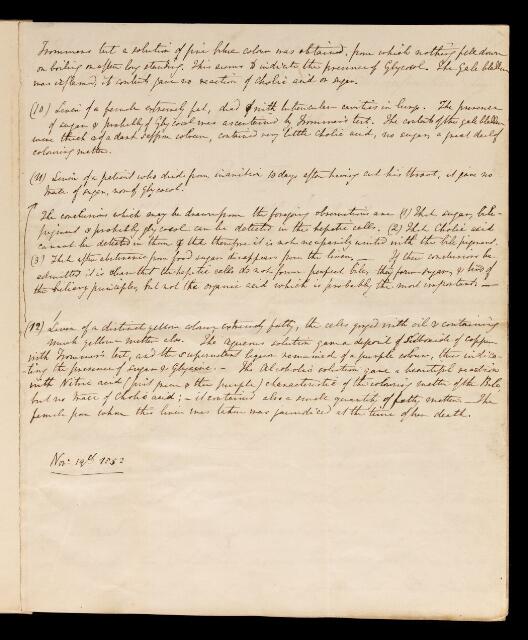 Trommers test a solution of fine blue colour was obtained, from which nothing fell down
on boiling or after long standing. This seems to indicate the presence of Glycocol. The Gall bladder
was inflamed, it contents gave no reaction of cholic acid or sugar.
(10) Liver of a female extremely fat, died with tubercular cavities in lungs. The presence
of sugar & probably of Glycocol was ascertained by Trommer's test. The contents of the gall bladder
were thick & of a dark saffron colour, contained very little cholic acid, no sugar, a great deal of
colouring matter.
(11) Liver of a patient who died from inanition 10 days after having cut his throat, it gave no
trace of sugar, nor of glycocol.
The conclusions which may be drawn from the foregoing observations are (1) That sugar, bile-
pigment & probably glycocol can be detected in the hepatic cells. (2) That Cholic acid
cannot be detected in them & that therefore it is not necessarily united with the bile pigment.
(3) That after abstinence from food sugar disappears from the liver. — If these conclusions be
admitted it is clear that the hepatic cells do not form perfect bile, they form sugar, & two of
the biliary principles, but not the organic acid which is probably the most important. —
(12) Liver of a distinct yellow colour, extremely fatty, the cells gorged with oil & containing
much yellow matter also. The aqueous solution gave a deposit of Suboxide of copper
with Trommer's test, and the supernatent liquor remained of a purple colour, thus indica-
-ting the presence of Sugar & Glycocol. — The Alcoholic solution gave a beautiful reaction
with Nitric acid (first green & then purple) characteristic of the colouring matter of the Bile,
but no trace of Cholic acid; — it contained also a small quantity of fatty matter. — The
female from whom the liver was taken was jaundiced at the time of her death.
Nov. 19th 1852